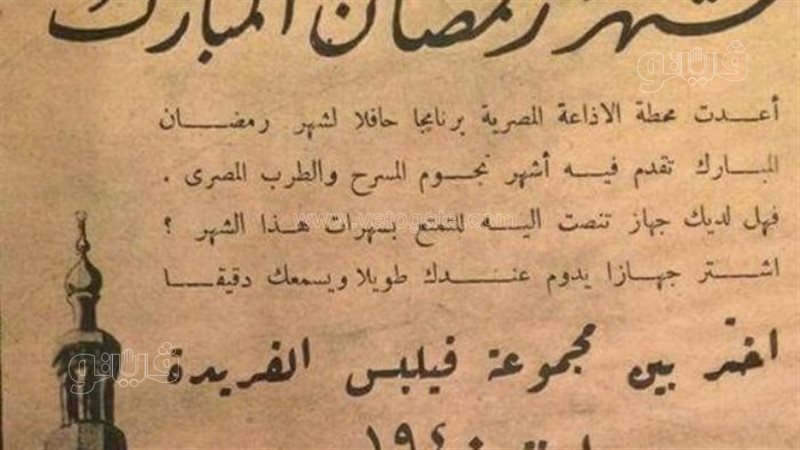 شهر رمضان المبارك
أعدت محطة الاذاعة المصرية برنامجا حافلا لشهر رمضان
المبارك تقدم فيه أشهر نجوم المسرح والطرب المصرى .
فهل لديك جهاز تنصت اليه للتمتع بسهرات هذا الشهر ؟
اشتر جهازا يدوم عندك طويلا ويسمعك دقيقا
اختر بين مجموعة فيلبس الفريدة
١٩٤٠
فيتو
www.vetogate.com
فيتو